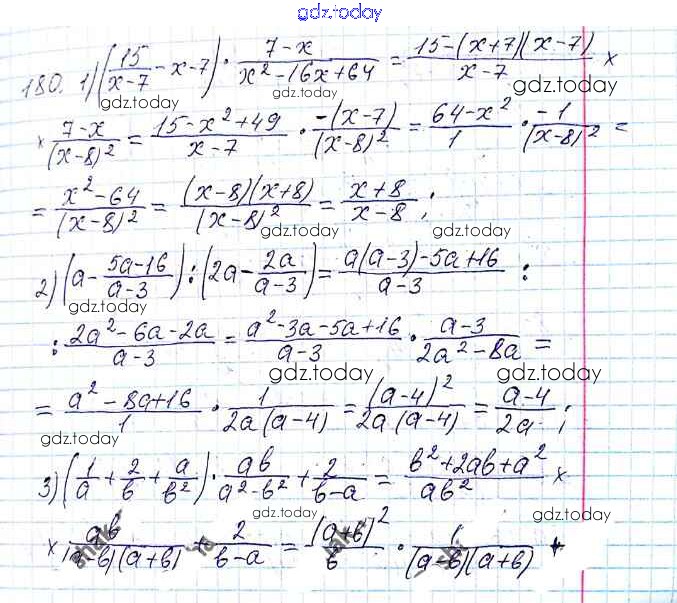 gdz.today
180. 1) (15/(x-7) - x - 7) · (7-x)/(x²-16x+64) = (15-(x+7)(x-7))/(x-7) ×
gdz.today gdz.today
× (7-x)/(x-8)² = (15-x²+49)/(x-7) · (-(x-7))/(x-8)² = (64-x²)/1 · (-1)/(x-8)² =
= (x²-64)/(x-8)² = ((x-8)(x+8))/(x-8)² = (x+8)/(x-8);
gdz.today gdz.today
2) (a - (5a-16)/(a-3)) : (2a - 2a/(a-3)) = (a(a-3)-5a+16)/(a-3) :
gdz.today gdz.today
: (2a²-6a-2a)/(a-3) = (a²-3a-5a+16)/(a-3) · (a-3)/(2a²-8a) =
gdz.today
= (a²-8a+16)/1 · 1/(2a(a-4)) = (a-4)²/(2a(a-4)) = (a-4)/(2a);
gdz.today gdz.today
3) (1/a + 2/в + a/в²) · aв/(a²-в²) + 2/(в-a) = (в²+2aв+a²)/(aв²) ×
gdz.today gdz.today
× aв/((a-в)(a+в)) + 2/(в-a) = (a+в)²/в · 1/((a-в)(a+в)) +